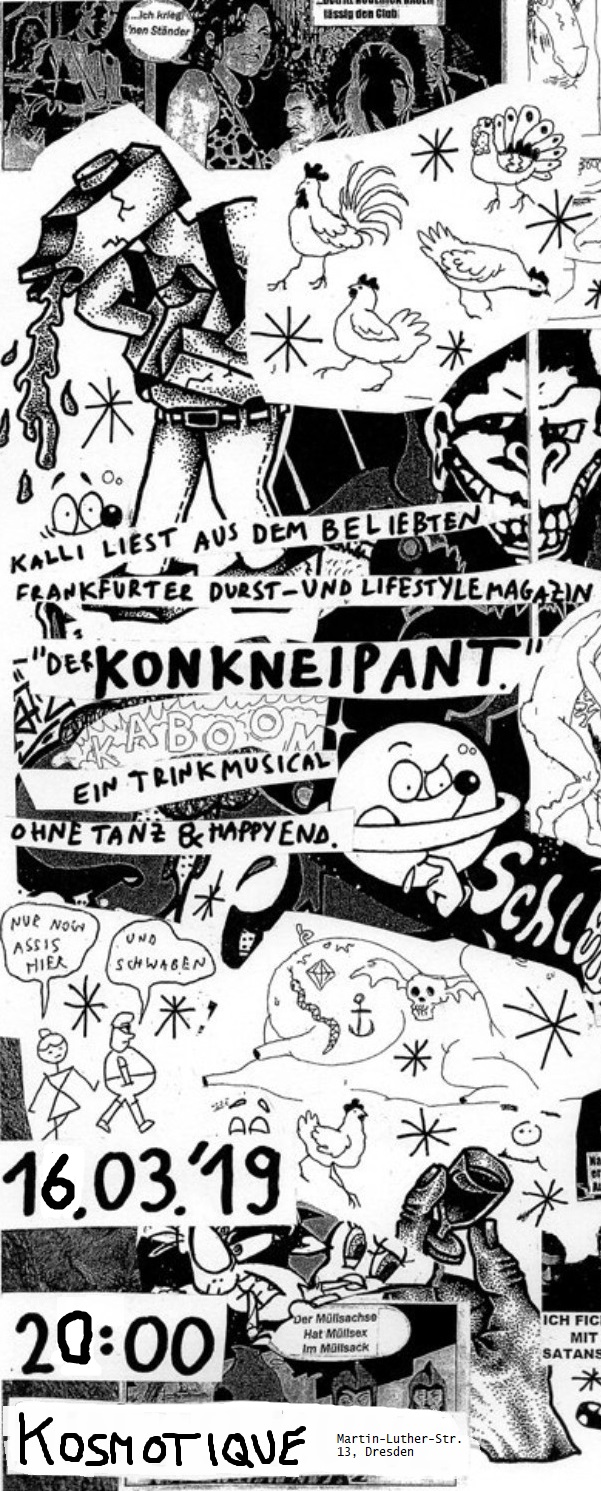 ...Ich krieg'
'nen Ständer
lässig den Club.
KALLI LIEST AUS DEM BELIEBTEN
FRANKFURTER DURST-UND LIFESTYLEMAGAZIN
"DER KONKNEIPANT."
KABOOM
EIN TRINKMUSICAL
OHNE TANZ & HAPPYEND.
SCHLU
NUR NOCH
ASSIS
HIER
UND
SCHWABEN
16.03.'19
20:00
Der Müllsachse
Hat Müllsex
Im Müllsack
ICH FIC
MIT
SATANS
KOSMOTIQUE
Martin-Luther-Str.
13, Dresden